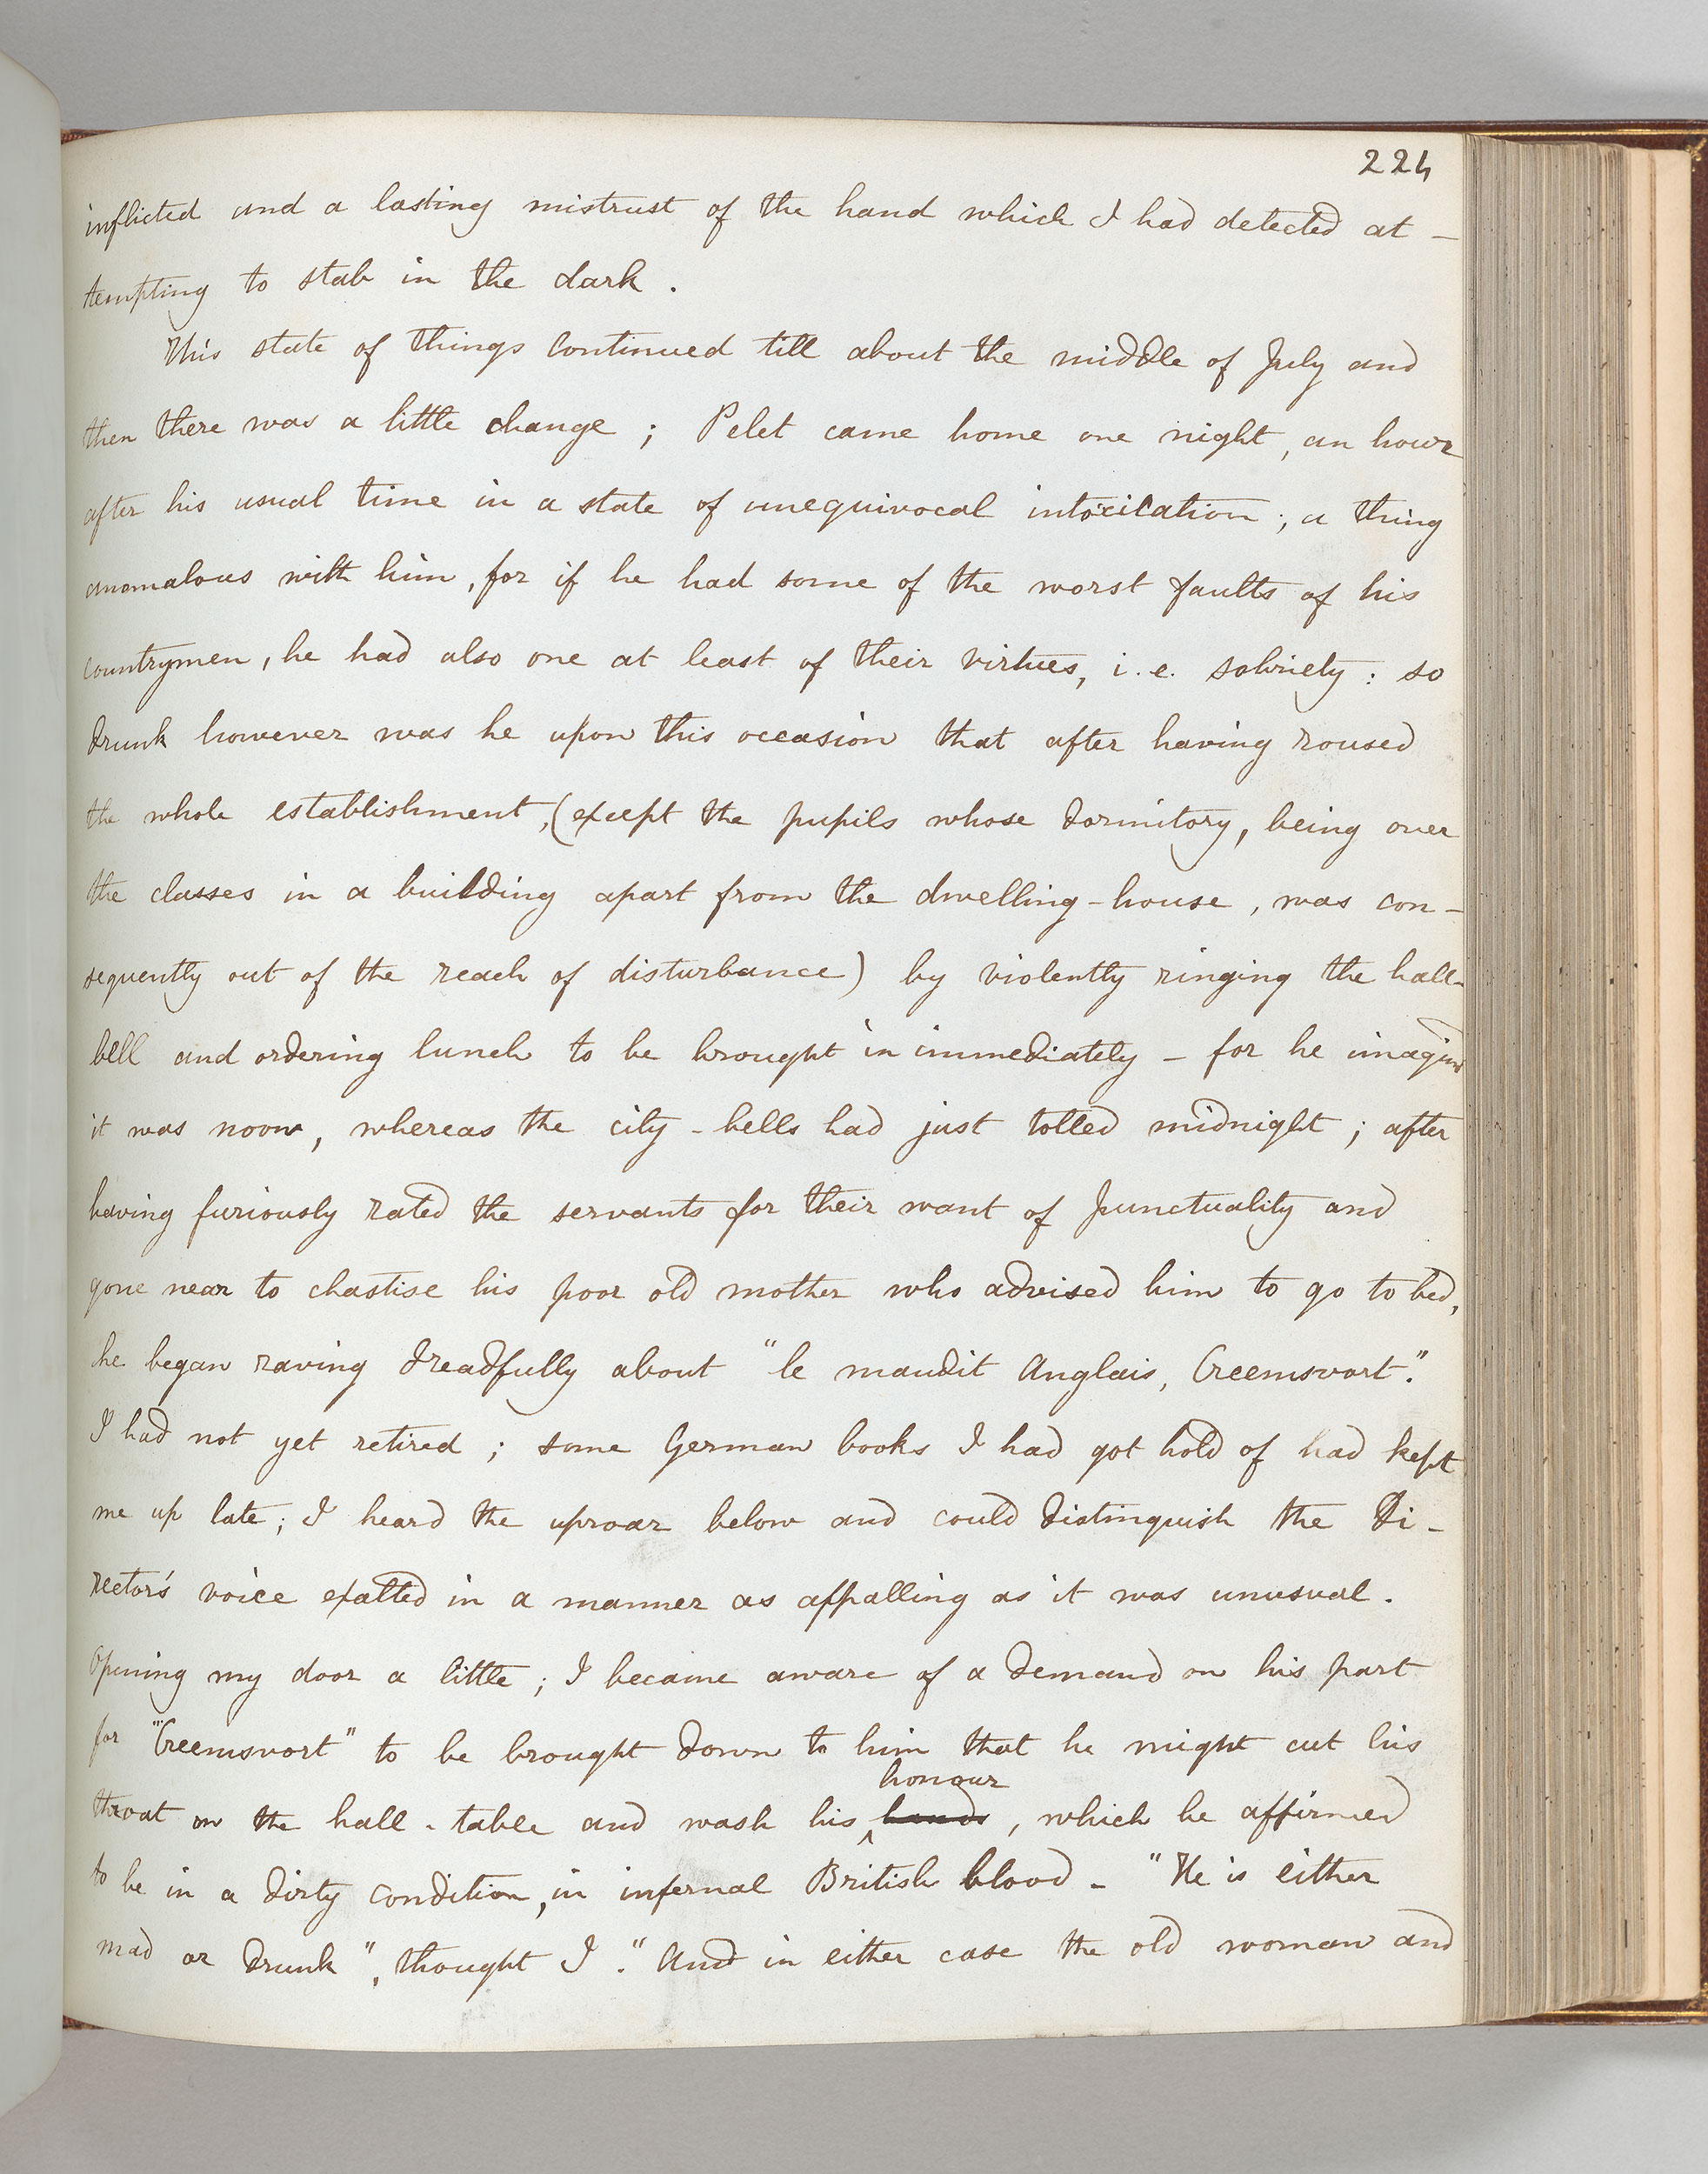 224
inflicted and a lasting mistrust of the hand which I had detected at-
tempting to stab in the dark.
This state of things continued till about the middle of July and
then there was a little change; Pelet came home one night, an hour
after his usual time in a state of unequivocal intoxication; a thing
anomalous with him, for if he had some of the worst faults of his
countrymen, he had also one at least of their virtues, i.e. sobriety: so
drunk however was he upon this occasion that after having roused
the whole establishment, (except the pupils whose dormitory, being over
the classes in a building apart from the dwelling-house, was con-
sequently out of the reach of disturbance) by violently ringing the hall-
bell and ordering lunch to be brought in immediately - for he imagined
it was noon, whereas the city-bells had just tolled midnight; after
having furiously rated the servants for their want of punctuality and
gone near to chastise his poor old mother who advised him to go to bed,
he began raving dreadfully about "le maudit Anglais, Creemsvort".
I had not yet retired; some German books I had got hold of had kept
me up late; I heard the uproar below and could distinguish the Di-
rector's voice exalted in a manner as appalling as it was unusual.
Opening my door a little; I became aware of a demand on his part
for "Creemsvort" to be brought down to him that he might cut his
throat on the hall-table and wash his hands honour, which he affirmed
to be in a dirty condition, in infernal British blood - "He is either
mad or drunk", thought I. "And in either case the old woman and